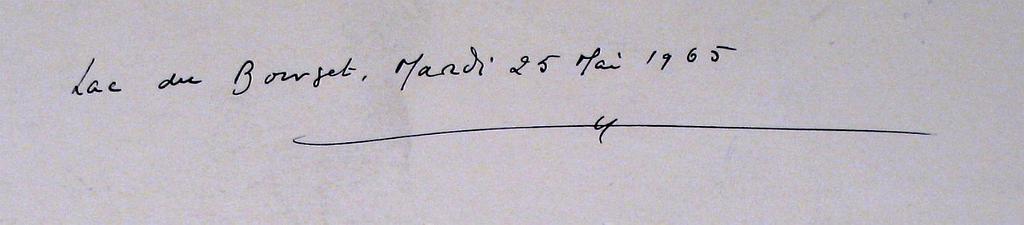 Lac du Bourget, Mardi 25 Mai 1965